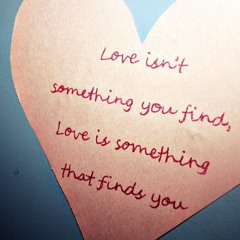 Love isn't
something you find,
Love is something
that finds you